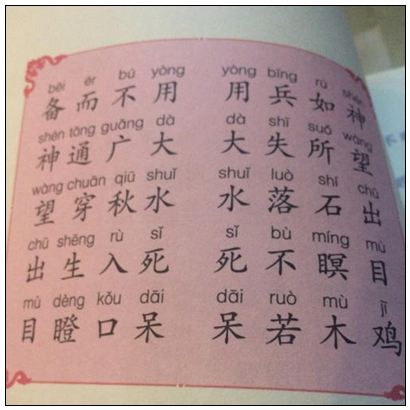 bèi ér bú yòng yòng bīng rú shén
备而不用 用兵如神
shén tōng guǎng dà dà shī suǒ wàng
神通广大 大失所望
wàng chuān qiū shuǐ shuǐ luò shí chū
望穿秋水 水落石出
chū shēng rù sǐ sǐ bù míng mù
出生入死 死不瞑目
mù dèng kǒu dāi dāi ruò mù jī
目瞪口呆 呆若木鸡